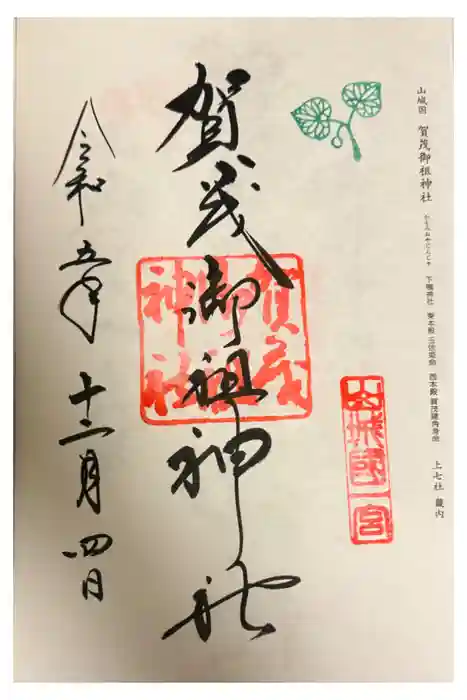 山城国 賀茂御祖神社 かもみおやじんじゃ 下鴨神社 東本殿 玉依姫命 西本殿 賀茂建角身命 上七社 畿内
山城國一宮
賀茂御祖神社
賀茂
御祖
神社
令和五年十二月四日